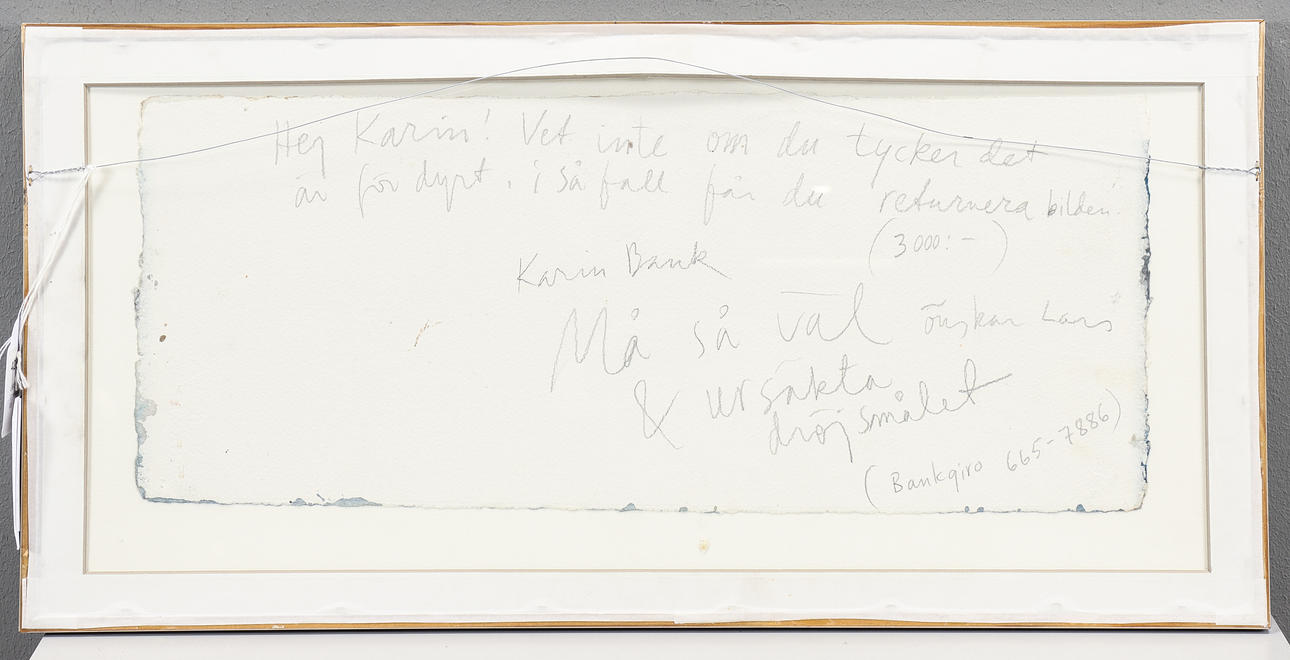 Hej Karin! Vet inte om du tycker det
är för dyrt. i så fall får du returnera bilden.
(3000:-)
Karin Bank
Må så väl önskar Lars
& ursäkta
dröjsmålet
(Bankgiro 665-7886)